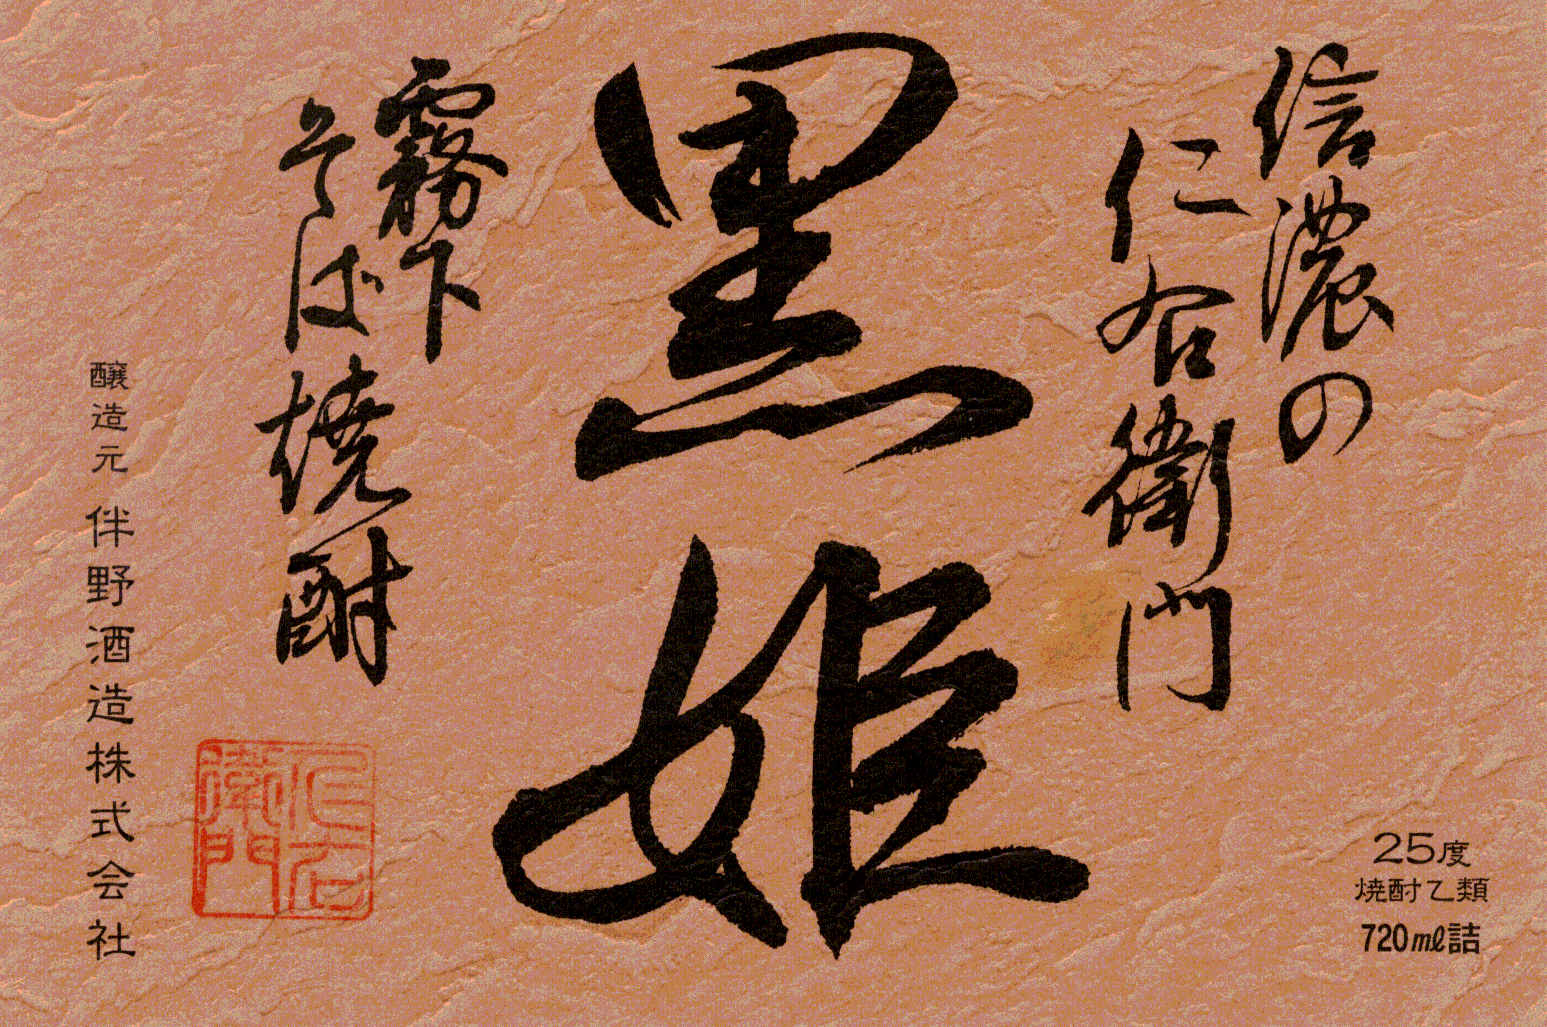 信濃の
仁右衛門
黒姫
霧下
そば焼酎
醸造元 伴野酒造株式会社
仁右
衛門
25度
焼酎乙類
720ml詰